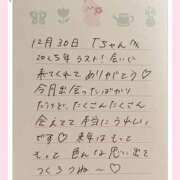 12月30日 Tちゃんへ
2025年ラスト!会いに
来てくれて ありがとう♡
今月出会ったばかり
だけど、たくさんたくさん
会えてて 本当にうれしい
です♡ 来年はもっと
もっと 色んな思い出を
つくろうね〜♡